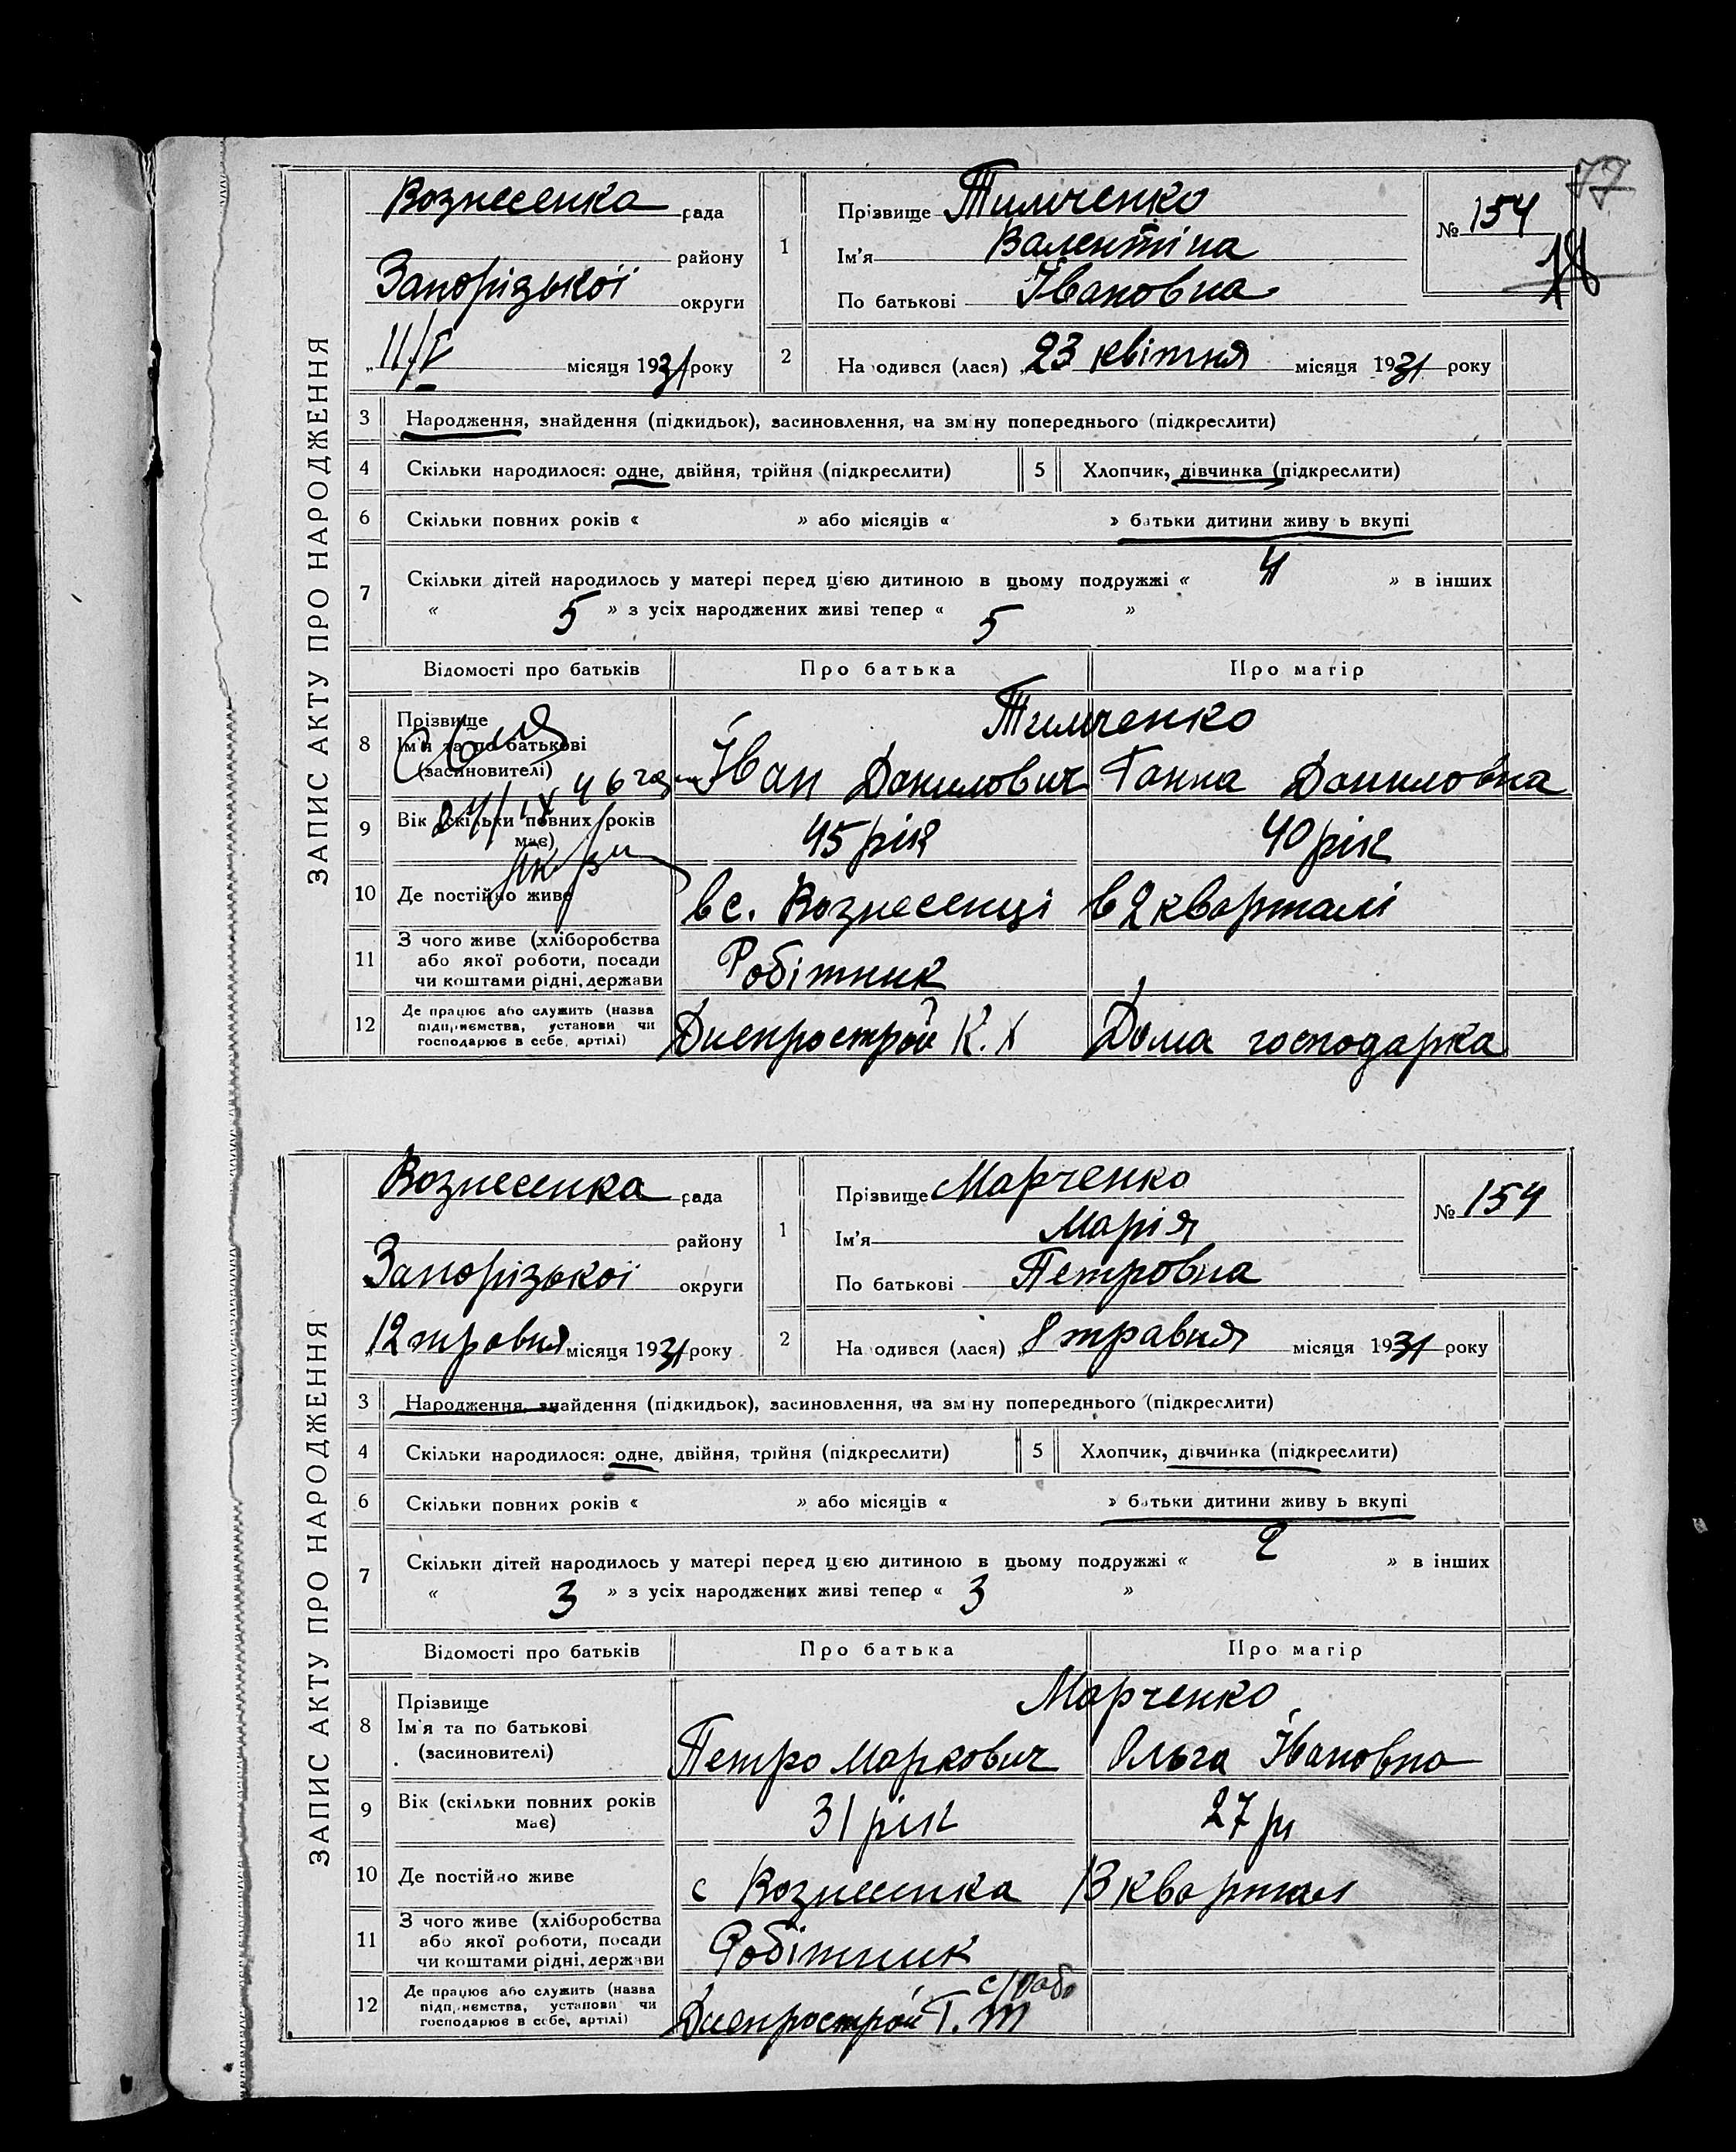 77
18
ЗАПИС АКТУ ПРО НАРОДЖЕННЯ
Вознесенка рада
району
Запорізької округи
„ 11/V місяця 1931 року
1 Прізвище Тимченко
Ім'я Валентіна
По батькові Івановна
№ 154
2 На одився (лася) „23 квітня місяця 1931 року
3 Народження, знайдення (підкидьок), засиновлення, на зм ну попереднього (підкреслити)
4 Скільки народилося: одне, двійня, трійня (підкреслити) 5 Хлопчик, дівчинка (підкреслити)
6 Скільки повних років « » або місяців « » батьки дитини живу ь вкупі
7 Скільки дітей народилось у матері перед цією дитиною в цьому подружжі « 4 » в інших
« 5 » з усіх народжених живі тепер « 5 »
Відомості про батьків Про батька Про матір
8 Прізвище Тимченко
Ім'я та по батькові
(засиновителі) Іван Данилович Ганна Даниловна
24/IX 46
9 Вік (скільки повних років
має) 45 рік 40 рік
10 Де постійно живе в с. Вознесенці в 2 кварталі
11 З чого живе (хліборобства
або якої роботи, посади
чи коштами рідні, держави Робітник
12 Де працює або служить (назва
підприємства, установи чи
господарює в себе, артілі) Днепрострой К. Х Дома господарка
ЗАПИС АКТУ ПРО НАРОДЖЕННЯ
Вознесенка рада
району
Запорізької округи
„12 травня місяця 1931 року
1 Прізвище Марченко
Ім'я Марія
По батькові Петровна
№ 154
2 На одився (лася) „8 травня місяця 1931 року
3 Народження, знайдення (підкидьок), засиновлення, на зм ну попереднього (підкреслити)
4 Скільки народилося: одне, двійня, трійня (підкреслити) 5 Хлопчик, дівчинка (підкреслити)
6 Скільки повних років « » або місяців « » батьки дитини живу ь вкупі
7 Скільки дітей народилось у матері перед цією дитиною в цьому подружжі « 2 » в інших
« 3 » з усіх народжених живі тепер « 3 »
Відомості про батьків Про батька Про матір
8 Прізвище Марченко
Ім'я та по батькові
(засиновителі) Петро Маркович Ольга Івановна
9 Вік (скільки повних років
має) 31 рік 27 рі
10 Де постійно живе с Вознесенка 13 квартал
11 З чого живе (хліборобства
або якої роботи, посади
чи коштами рідні, держави Робітник
12 Де працює або служить (назва
підприємства, установи чи
господарює в себе, артілі) Днепрострой Т. т